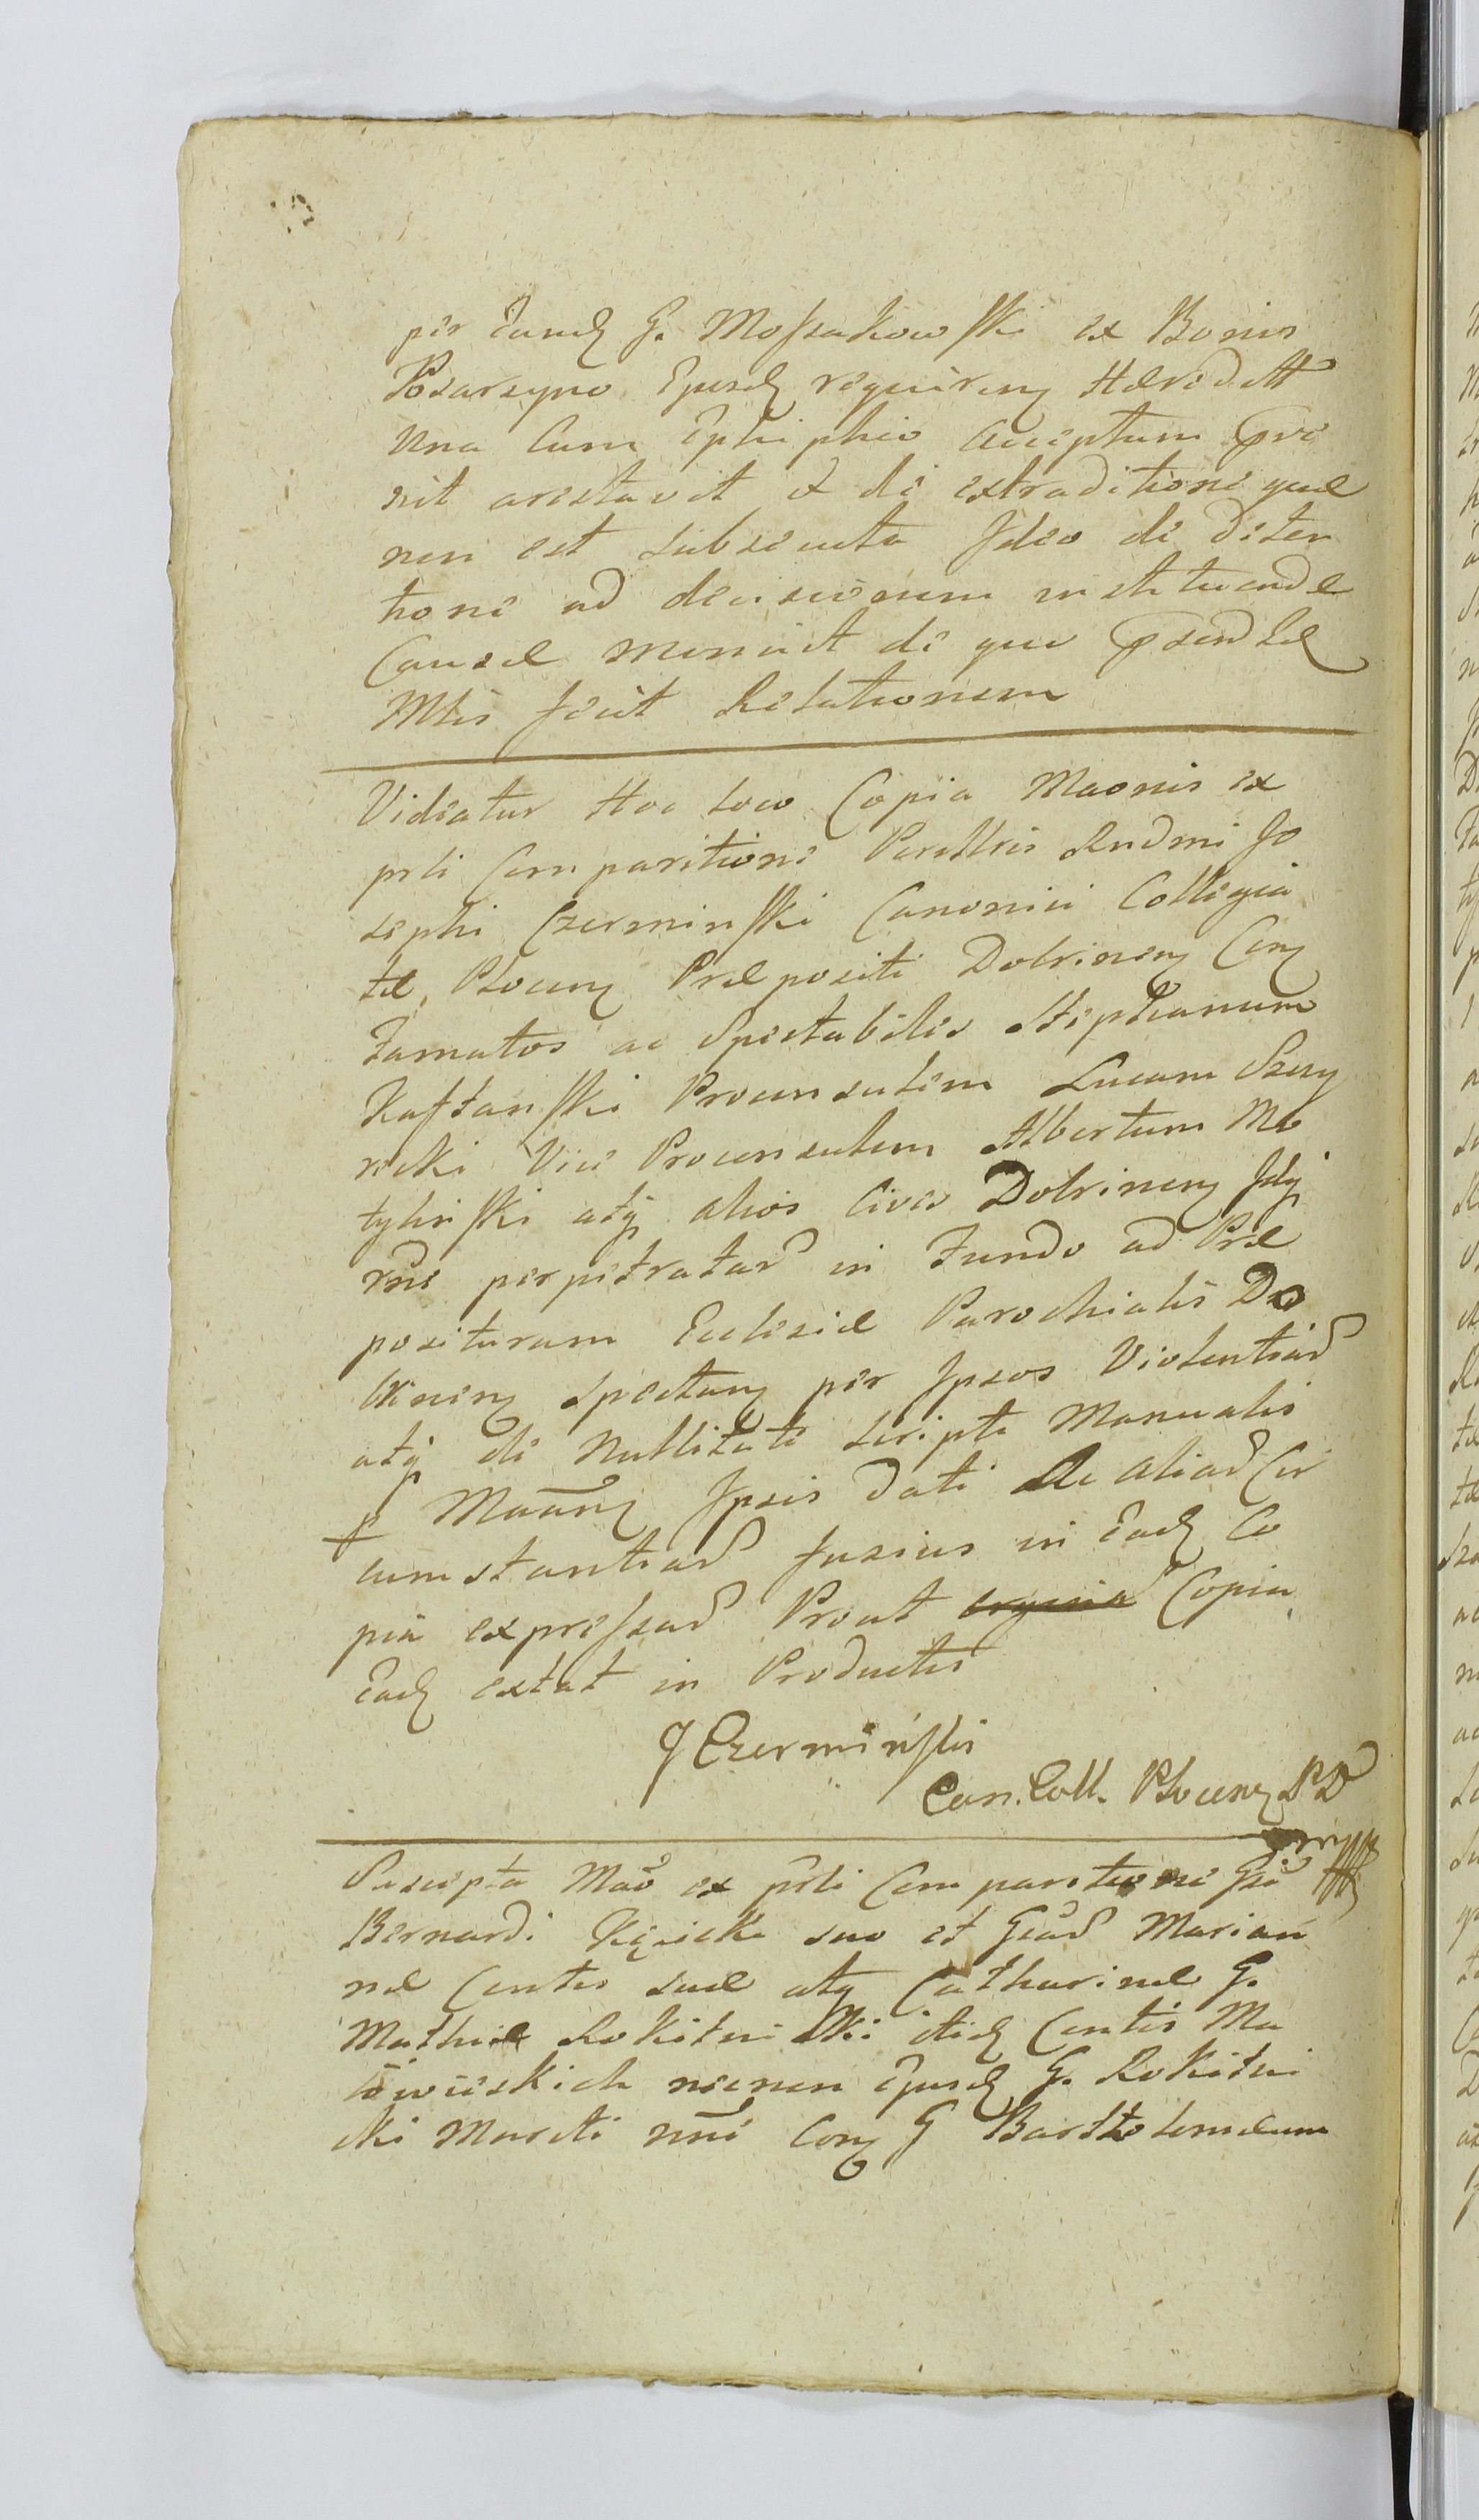 per Eund G. Mossakowski ex Bonis
Ejusd requiren Hæredit
una cum Ephiphio acceptum
nit arestavit et de extraditione quæ
non est subsecuta Ideo de deten
tione ad decisionem instituendæ
Causæ monuit de quo
Mtis fecit Relationem
Videatur Hoc loco Copia Maonis ex
prli Comparitione Perillris Rndmi Jo
sephi Czerminski Canonici Collegia
tæ Plocen Præpositi Dobrinen Con
Famatos ac Spectabiles Stephanum
Kaftanski Proconsulem Lucam Szczy
Vice Proconsulem Albertum Mo
tylinski atq alios Cives Dobrinen
rne perpetratar in Fundo ad Præ
posituram Ecclesiæ Parochialis Do
brinen spectan per Ipsos Violentiar
atq de Nullitate scripti Manualis
p Ipsis dati Ac aliar Cir
cumstantiar fusius in Ead Co
pia expressar Prout Copia
Ead extat in Productis
J Czerminski
Can. Coll. Plocen PD
Suscepta Mao ex prli Comparitione Gsi
Bernardi Kęsicki suo et Gear Marian
næ Contis suæ atq Catharinæ G.
Mathiæ Rokitnicki itid Contis Ma
necnon Ejusd G. Rokitni
cki Mariti nne Con G Barthtolomeum